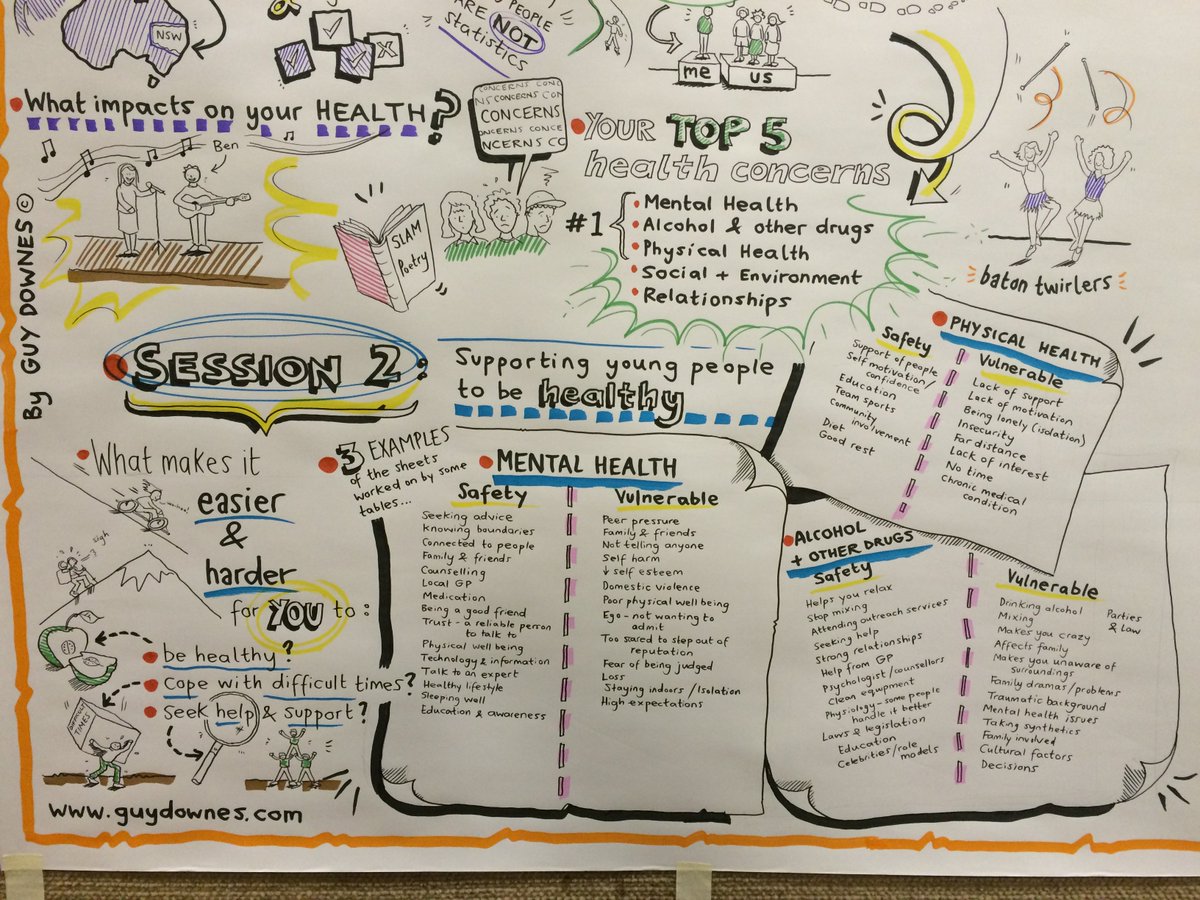 NSW
PEOPLE
ARE NOT
statistics
me
us
What impacts on your HEALTH?
Ben
SLAM
Poetry
CONCERNS CONC
NS CONCERNS CON
CONCERNS
ONCERNS CONCE
NCERNS CO
YOUR TOP 5
health concerns
#1
Mental Health
Alcohol & other drugs
Physical Health
Social + Environment
Relationships
baton twirlers
By GUY DOWNES ©
SESSION 2:
Supporting young people
to be healthy
What makes it
easier
&
harder
for YOU to:
?
sigh
be healthy?
Cope with difficult times?
Seek help & support?
DIFFICULT
TIMES
www.guydownes.com
3 EXAMPLES
of the sheets
worked on by some
tables...
MENTAL HEALTH
Safety
Seeking advice
Knowing boundaries
Connected to people
Family & friends
Counselling
Local GP
Medication
Being a good friend
Trust - a reliable person
to talk to
Physical well being
Technology & information
Talk to an expert
Healthy lifestyle
Sleeping well
Education & awareness
Vulnerable
Peer pressure
Family & friends
Not telling anyone
Self harm
↓ self esteem
Domestic violence
Poor physical well being
Ego - not wanting to
admit
Too scared to step out of
reputation
Fear of being judged
Loss
Staying indoors / Isolation
High expectations
PHYSICAL HEALTH
Safety
Support of people
Self motivation/
confidence
Education
Team sports
Community
involvement
Diet
Good rest
Vulnerable
Lack of support
Lack of motivation
Being lonely (isolation)
Insecurity
Far distance
Lack of interest
No time
Chronic medical
condition
ALCOHOL
+ OTHER DRUGS
Safety
Helps you relax
Stop mixing
Attending outreach services
Seeking help
Strong relationships
Help from GP
Psychologist/counsellors
Clean equipment
Physiology - some people
handle it better
Laws & legislation
Education
Celebrities/role
models
Vulnerable
Drinking alcohol
Mixing
Makes you crazy
Affects family
Makes you unaware of
surroundings
Family dramas/problems
Traumatic background
Mental health issues
Taking synthetics
Family involved
Cultural factors
Decisions
Parties
& Law